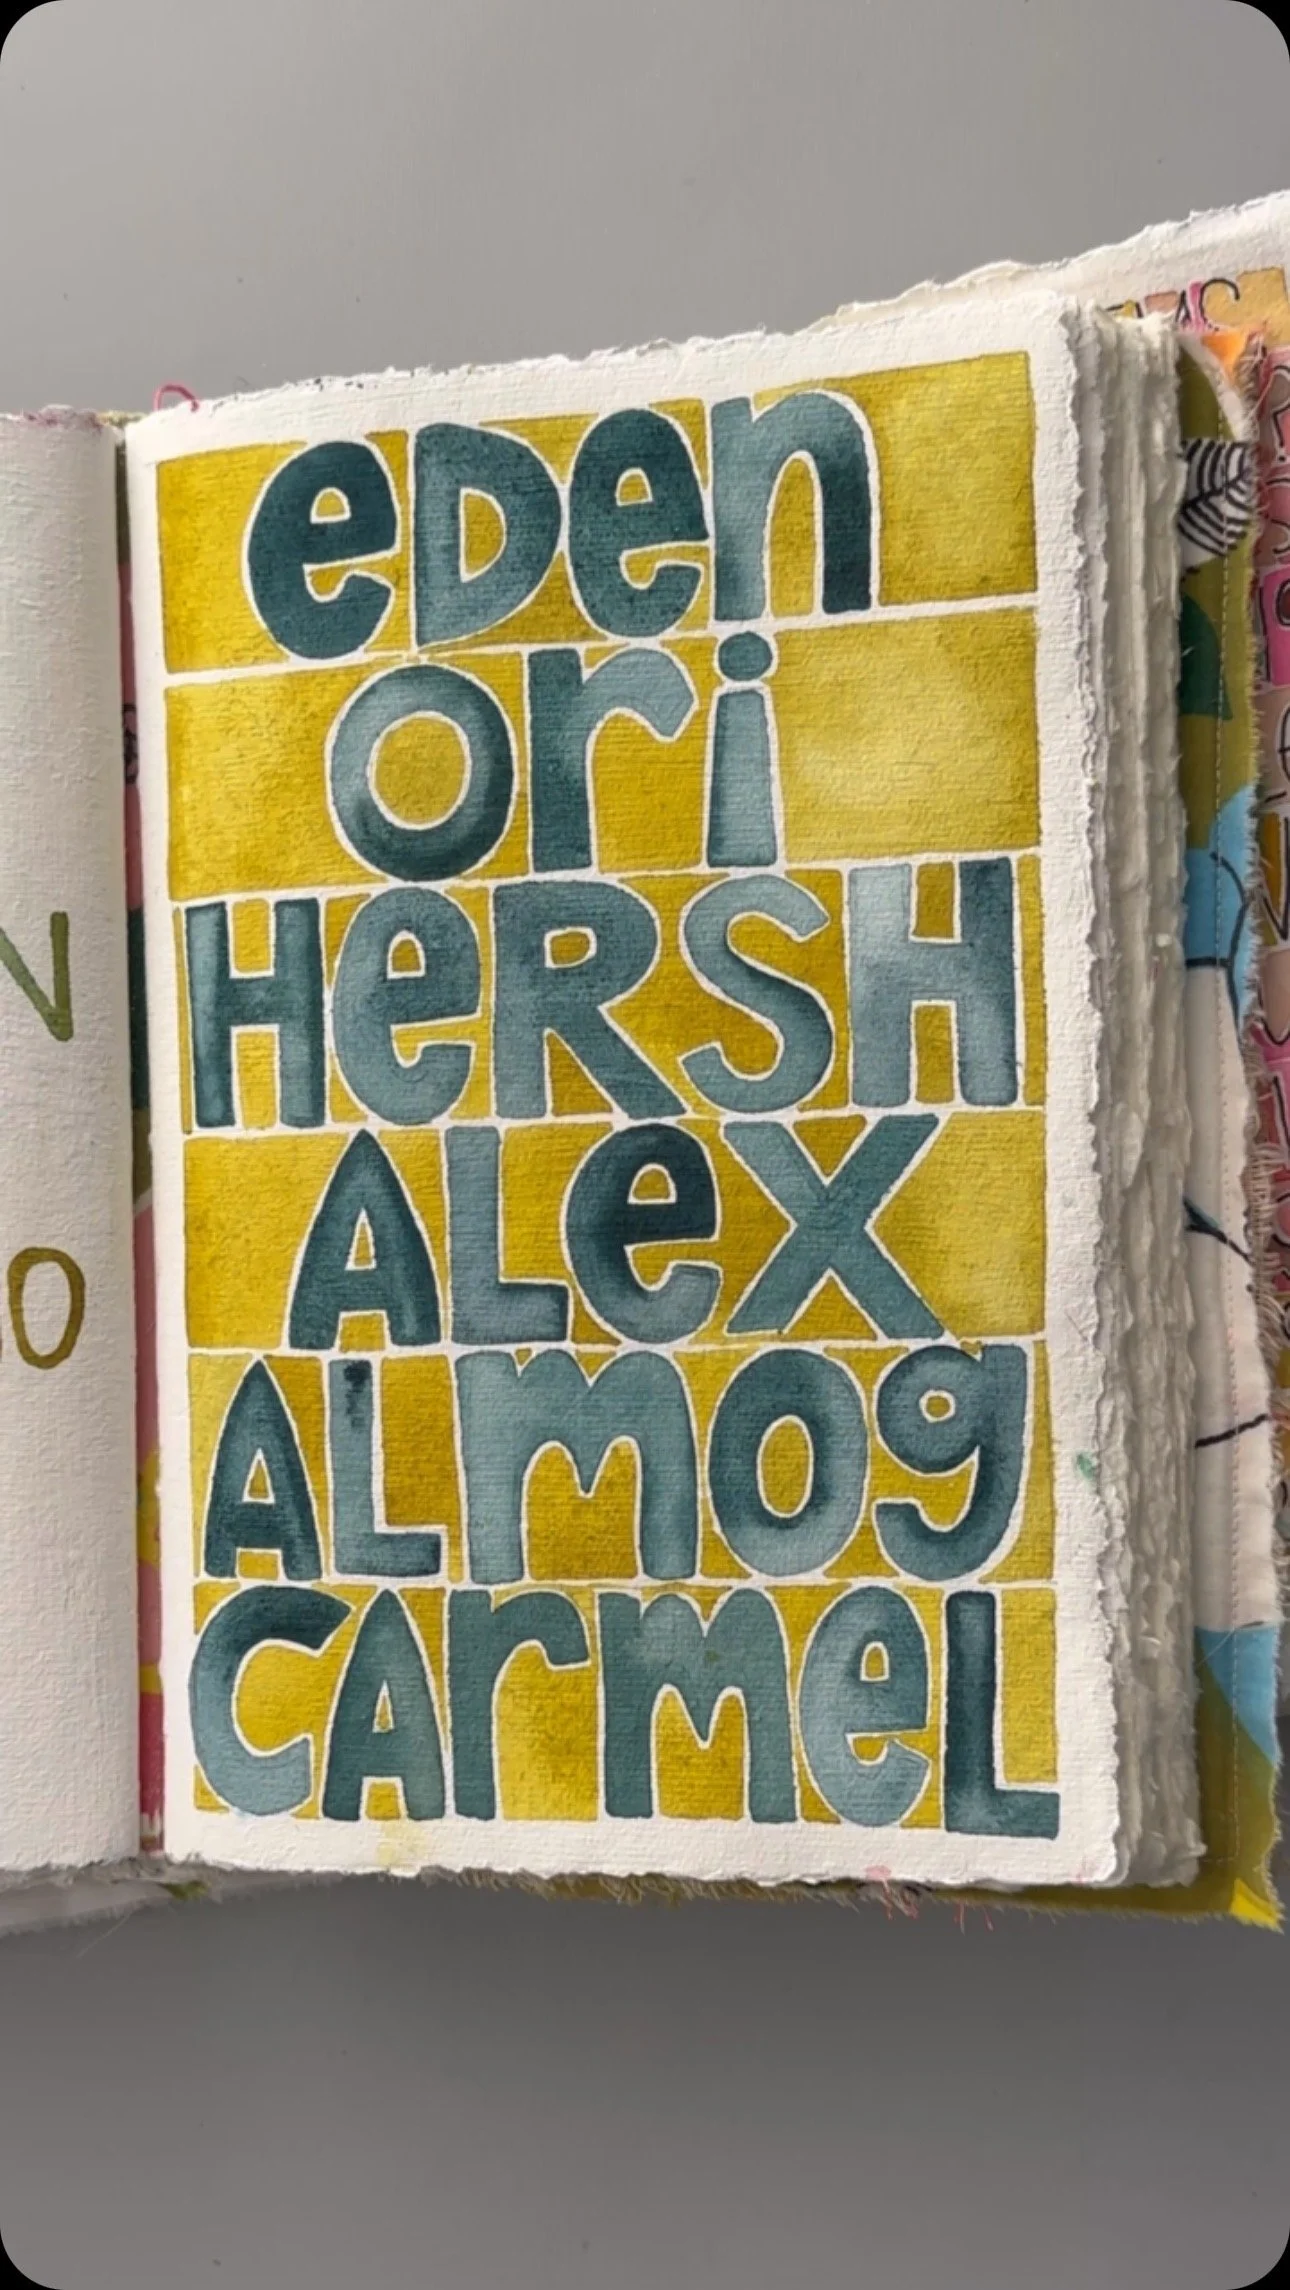 eDen
ori
HeRSH
ALex
ALmog
CArmeL